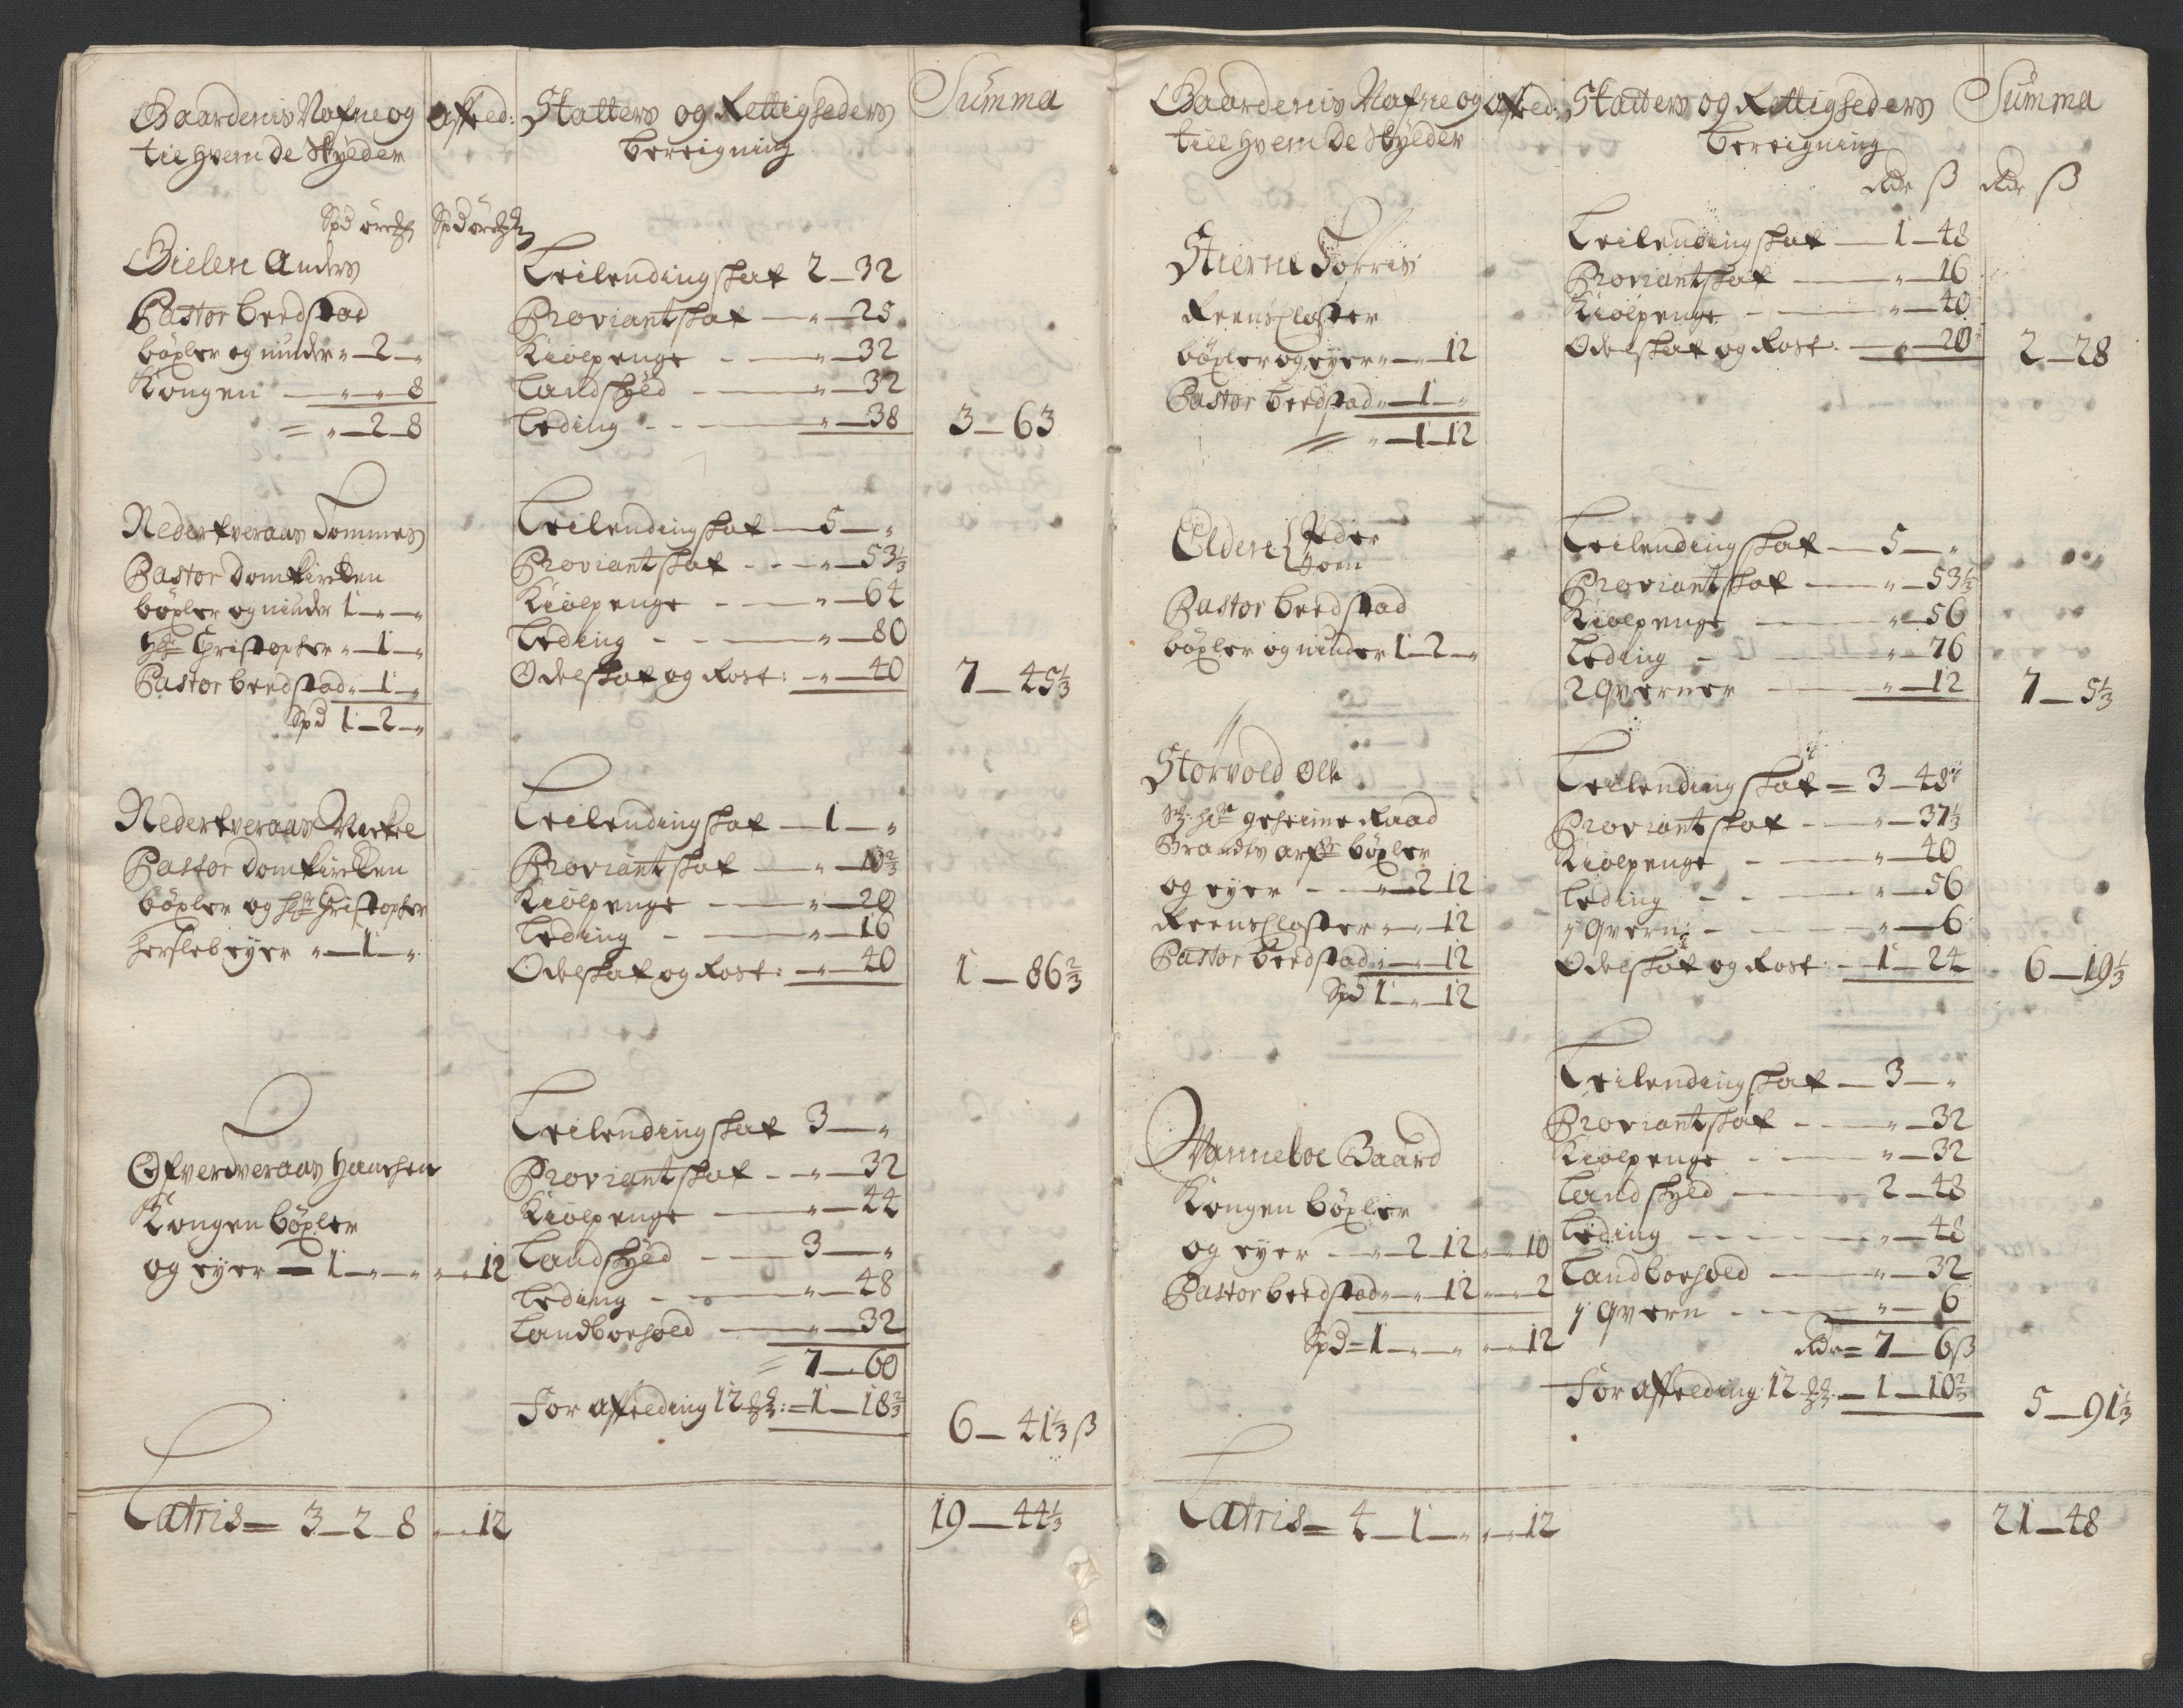 Gaardenis Nafne og
till hvem de Skylder
affed:
Skatters og Rettigheders
bereigning
Summa
Spd öre
Spd öre
Bielen Anders
Pastor beedstad
böxler og minder " — 2 — "
Kongen — " — " — 8
= " — 2 — 8
Leilendingskat 2 — 32
Proviantskat — " — 25
Kiölpenge — " — 32
Landskyld — " — 32
Leding — " — 38
3 — 63
Nederkveraas Tommes
Pastor Domkircken
böxler og minder 1 — " — "
Hr Christopher " — 1 — "
Pastor beedstad " — 1 — "
Spd 1 — 2 — "
Leilendingskat — 5 — "
Proviantskat — " — 53⅓
Kiölpenge — " — 64
Leding — " — 80
Odelskat og Rost: — " — 40
7 — 45⅓
Nederkveraas Mickel
Pastor Domkircken
böxler og Hr Christopher
Hersleb eyer " — 1 — "
Leilendingskat — 1 — "
Proviantskat — " — 10⅔
Kiölpenge — " — 20
Leding — " — 16
Odelskat og Rost: — " — 40
1 — 86⅔
Ofverdveraas Hanshen
Kongen böxler
og eyer — 1 — " — " " — " — 12
Leilendingskat 3 — "
Proviantskat — " — 32
Kiölpenge — " — 44
Landskyld — 3 — "
Leding — " — 48
Landboehold — " — 32
= 7 — 60
For affelding 12 = 1 — 18⅔
6 — 41⅓ ß
Latris = 3 — 2 — 8 " — " — 12
19 — 44⅓
Gaardenis Nafne og
till hvem de Skylder
affed:
Skatters og Rettigheders
bereigning
Summa
Rdr ß Rdr ß
Stierne Torris
Reenscloster
böxler og eyer " — " — 12
Pastor beedstad " — 1 — "
= " — 1 — 12
Leilendingskat — 1 — 48
Proviantskat — " — 16
Kiölpenge — " — 40
Odelskat og Rost: — " — 20
2 — 28
Elden { Peder
Joen
Pastor beedstad
böxler og minder 1 — 2 — "
Leilendingskat — 5 — "
Proviantskat — " — 53⅓
Kiölpenge — " — 56
Leding — " — 76
2 Qverner — " — 12
7 — 5⅓
Störvold Ole
Sl. Hr geheime Raad
Brandts arfr böxler
og eyer — " — 2 12
Reenscloster " — " — 12
Pastor beedstad " — " — 12
Spd 1 — " — 12
Leilendingskat = 3 — 48
Proviantskat — " — 37⅓
Kiölpenge — " — 40
Leding — " — 56
1 Qvern: — " — 6
Odelskat og Rost: — 1 — 24
6 — 19⅓
Vanneloe Baard
Kongen böxler
og eyer — " — 2 12 " — 10
Pastor beedstad " — " — 12 " — " — 2
Spd = 1 — " — " " — " — 12
Leilendingskat — 3 — "
Proviantskat — " — 32
Kiölpenge — " — 32
Landskyld — 2 — 48
Leding — " — 48
Landboehold — " — 32
1 Qvern — " — 6
Rdr = 7 — 6 ß
For affelding 12 — 1 — 10⅔
5 — 91⅓
Latris = 4 — 1 — " " — " — 12
21 — 48